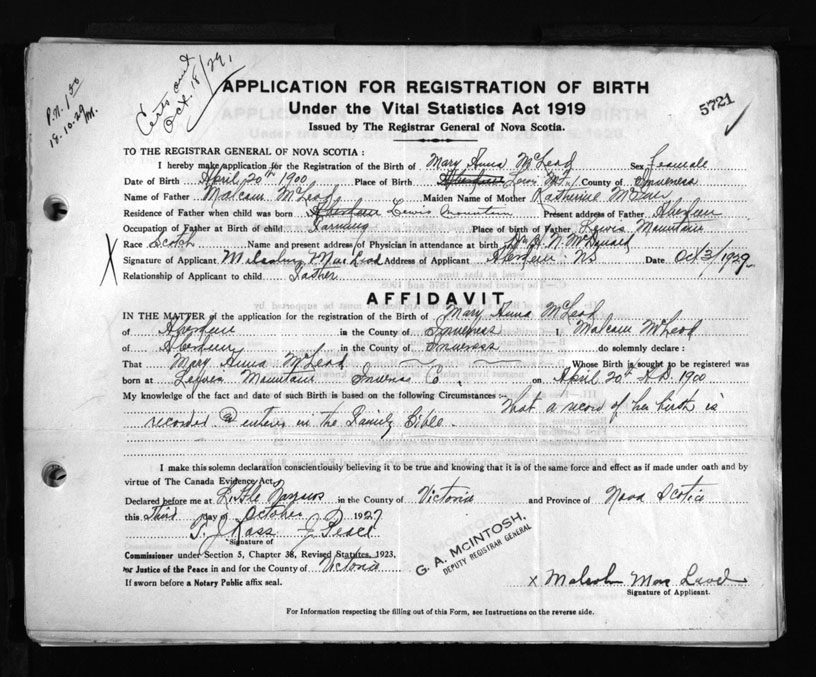 Certs out
Oct. 18/29.
P.N. 1.00
18-10-29
APPLICATION FOR REGISTRATION OF BIRTH
Under the Vital Statistics Act 1919
Issued by The Registrar General of Nova Scotia.
5721
TO THE REGISTRAR GENERAL OF NOVA SCOTIA:
I hereby make application for the Registration of the Birth of Mary Anna McLeod Sex Female
Date of Birth April 20th 1900 Place of Birth Aberdeen Lewis Mt. County of Inverness
Name of Father Malcolm McLeod Maiden Name of Mother Katherine
Residence of Father when child was born Aberdeen Lewis Mountain Present address of Father Aberdeen
Occupation of Father at Birth of child Farming Place of birth of Father Lewis Mountain
Race Scotch Name and present address of Physician in attendance at birth Dr. H. N. McDonald
X Signature of Applicant Malcolm MacLeod Address of Applicant Aberdeen NS Date Oct 3/1929
Relationship of Applicant to child Father
AFFIDAVIT
IN THE MATTER of the application for the registration of the Birth of Mary Anna McLeod
of Aberdeen in the County of Inverness I, Malcolm McLeod
of Aberdeen in the County of Inverness do solemnly declare:
That Mary Anna McLeod Whose Birth is sought to be registered was
born at Lewis Mountain Inverness Co. on April 20th A.D. 1900
My knowledge of the fact and date of such Birth is based on the following Circumstances:- That a record of her birth is
recorded & entered in the Family Bible.
I make this solemn declaration conscientiously believing it to be true and knowing that it is of the same force and effect as if made under oath and by
virtue of The Canada Evidence Act.
Declared before me at Little Narrows in the County of Victoria and Province of Nova Scotia
this Third day of October 1927
T. J. Ross J Peace
Signature of
Commissioner under Section 5, Chapter 38, Revised Statutes, 1923,
or Justice of the Peace in and for the County of Victoria
If sworn before a Notary Public affix seal.
G. A. McINTOSH,
DEPUTY REGISTRAR GENERAL
x Malcolm Mac Leod
Signature of Applicant.
For Information respecting the filling out of this Form, see Instructions on the reverse side.